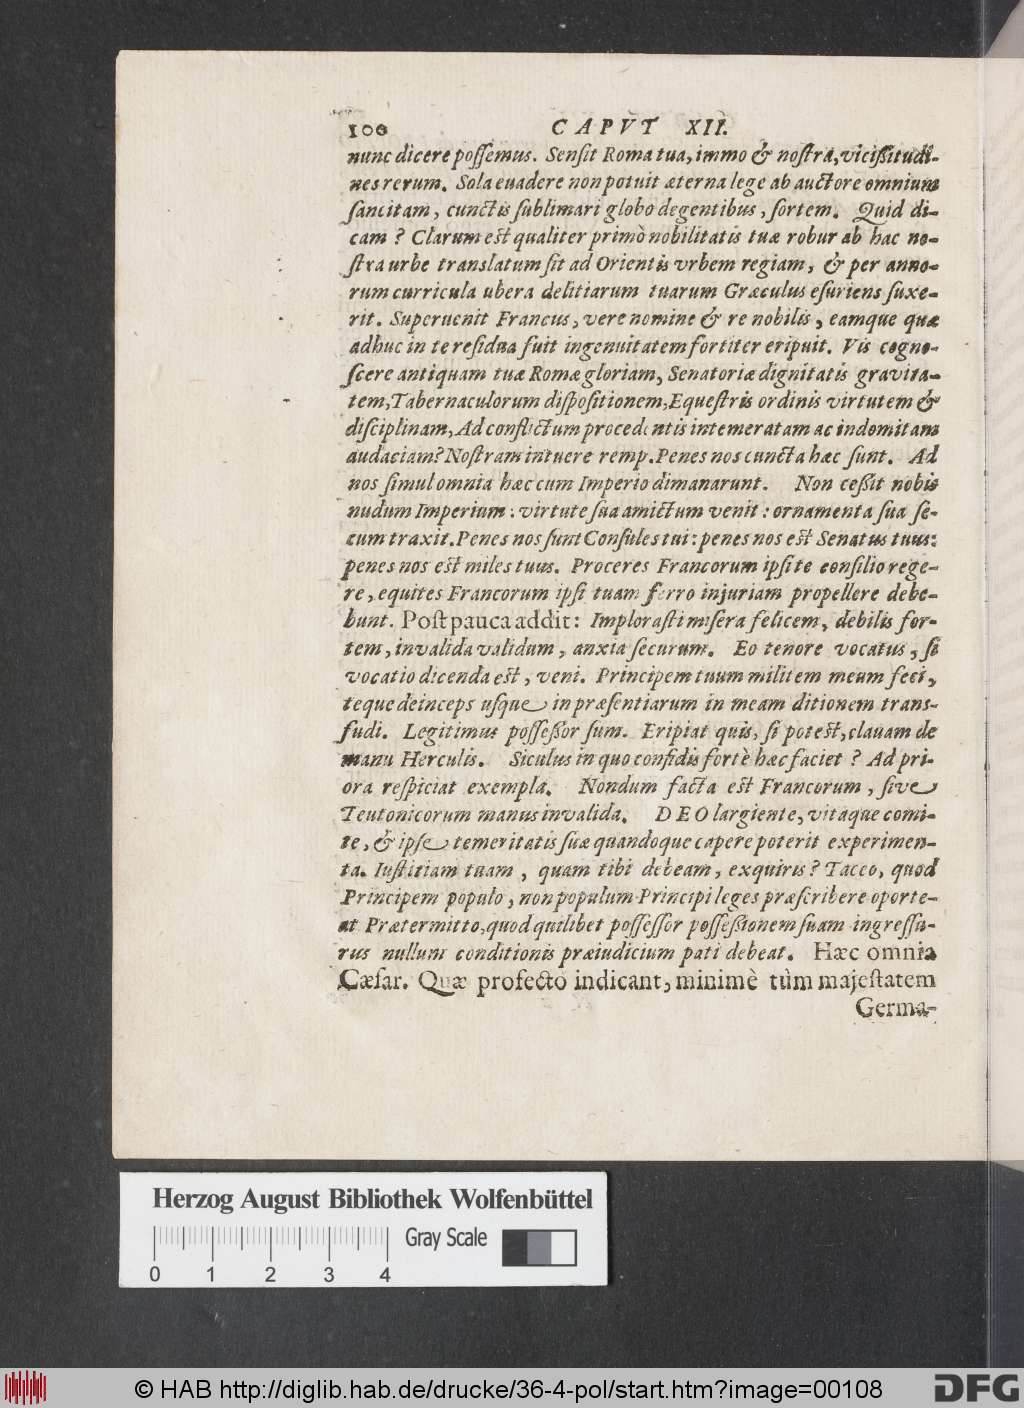 100 CAPVT XII.
nunc dicere possemus. Sensit Roma tua, immo & nostra, vicissitudi-
nes rerum. Sola euadere non potuit æterna lege ab auctore omnium
sancitam, cunctis sublimari globo degentibus, sortem. Quid di-
cam? Clarum est qualiter primò nobilitatis tuæ robur ab hac no-
stra urbe translatum sit ad Orientis vrbem regiam, & per anno-
rum curricula ubera delitiarum tuarum Græculus esuriens suxe-
rit. Superuenit Francus, vere nomine & re nobilis, eamque quæ
adhuc in te residua fuit ingenuitatem fortiter eripuit. Vis cogno-
scere antiquam tuæ Romæ gloriam, Senatoriæ dignitatis gravita-
tem, Tabernaculorum dispositionem, Equestris ordinis virtutem &
disciplinam, Ad conflictum procedentis intemeratam ac indomitam
audaciam? Nostram intuere remp. Penes nos cuncta hæc sunt. Ad
nos simul omnia hæc cum Imperio dimanarunt. Non cessit nobis
nudum Imperium: virtute sua amictum venit: ornamenta sua se-
cum traxit. Penes nos sunt Consules tui: penes nos est Senatus tuus:
penes nos est miles tuus. Proceres Francorum ipsi te consilio rege-
re, equites Francorum ipsi tuam ferro injuriam propellere debe-
bunt. Post pauca addit: Implorasti misera felicem, debilis for-
tem, invalida validum, anxia securum. Eo tenore vocatus, si
vocatio dicenda est, veni. Principem tuum militem meum feci,
teque deinceps usque in præsentiarum in meam ditionem trans-
fudi. Legitimus possessor sum. Eripiat quis, si potest, clavam de
manu Herculis. Siculus in quo confidis fortè hæc faciet? Ad pri-
ora respiciat exempla. Nondum facta est Francorum, sive
Teutonicorum manus invalida. DEO largiente, vitaque comi-
te, & ipse temeritatis suæ quandoque capere poterit experimen-
ta. Iustitiam tuam, quam tibi debeam, exquiris? Taceo, quod
Principem populo, non populum Principi leges præscribere oporte-
at Prætermitto, quod quilibet possessor possessionem suam ingressu-
rus nullum conditionis præiudicium pati debeat. Hæc omnia
Cæsar. Quæ profecto indicant, minimè tùm majestatem
Germa-
Herzog August Bibliothek Wolfenbüttel
Gray Scale
0 1 2 3 4
© HAB http://diglib.hab.de/drucke/36-4-pol/start.htm?image=00108
DFG